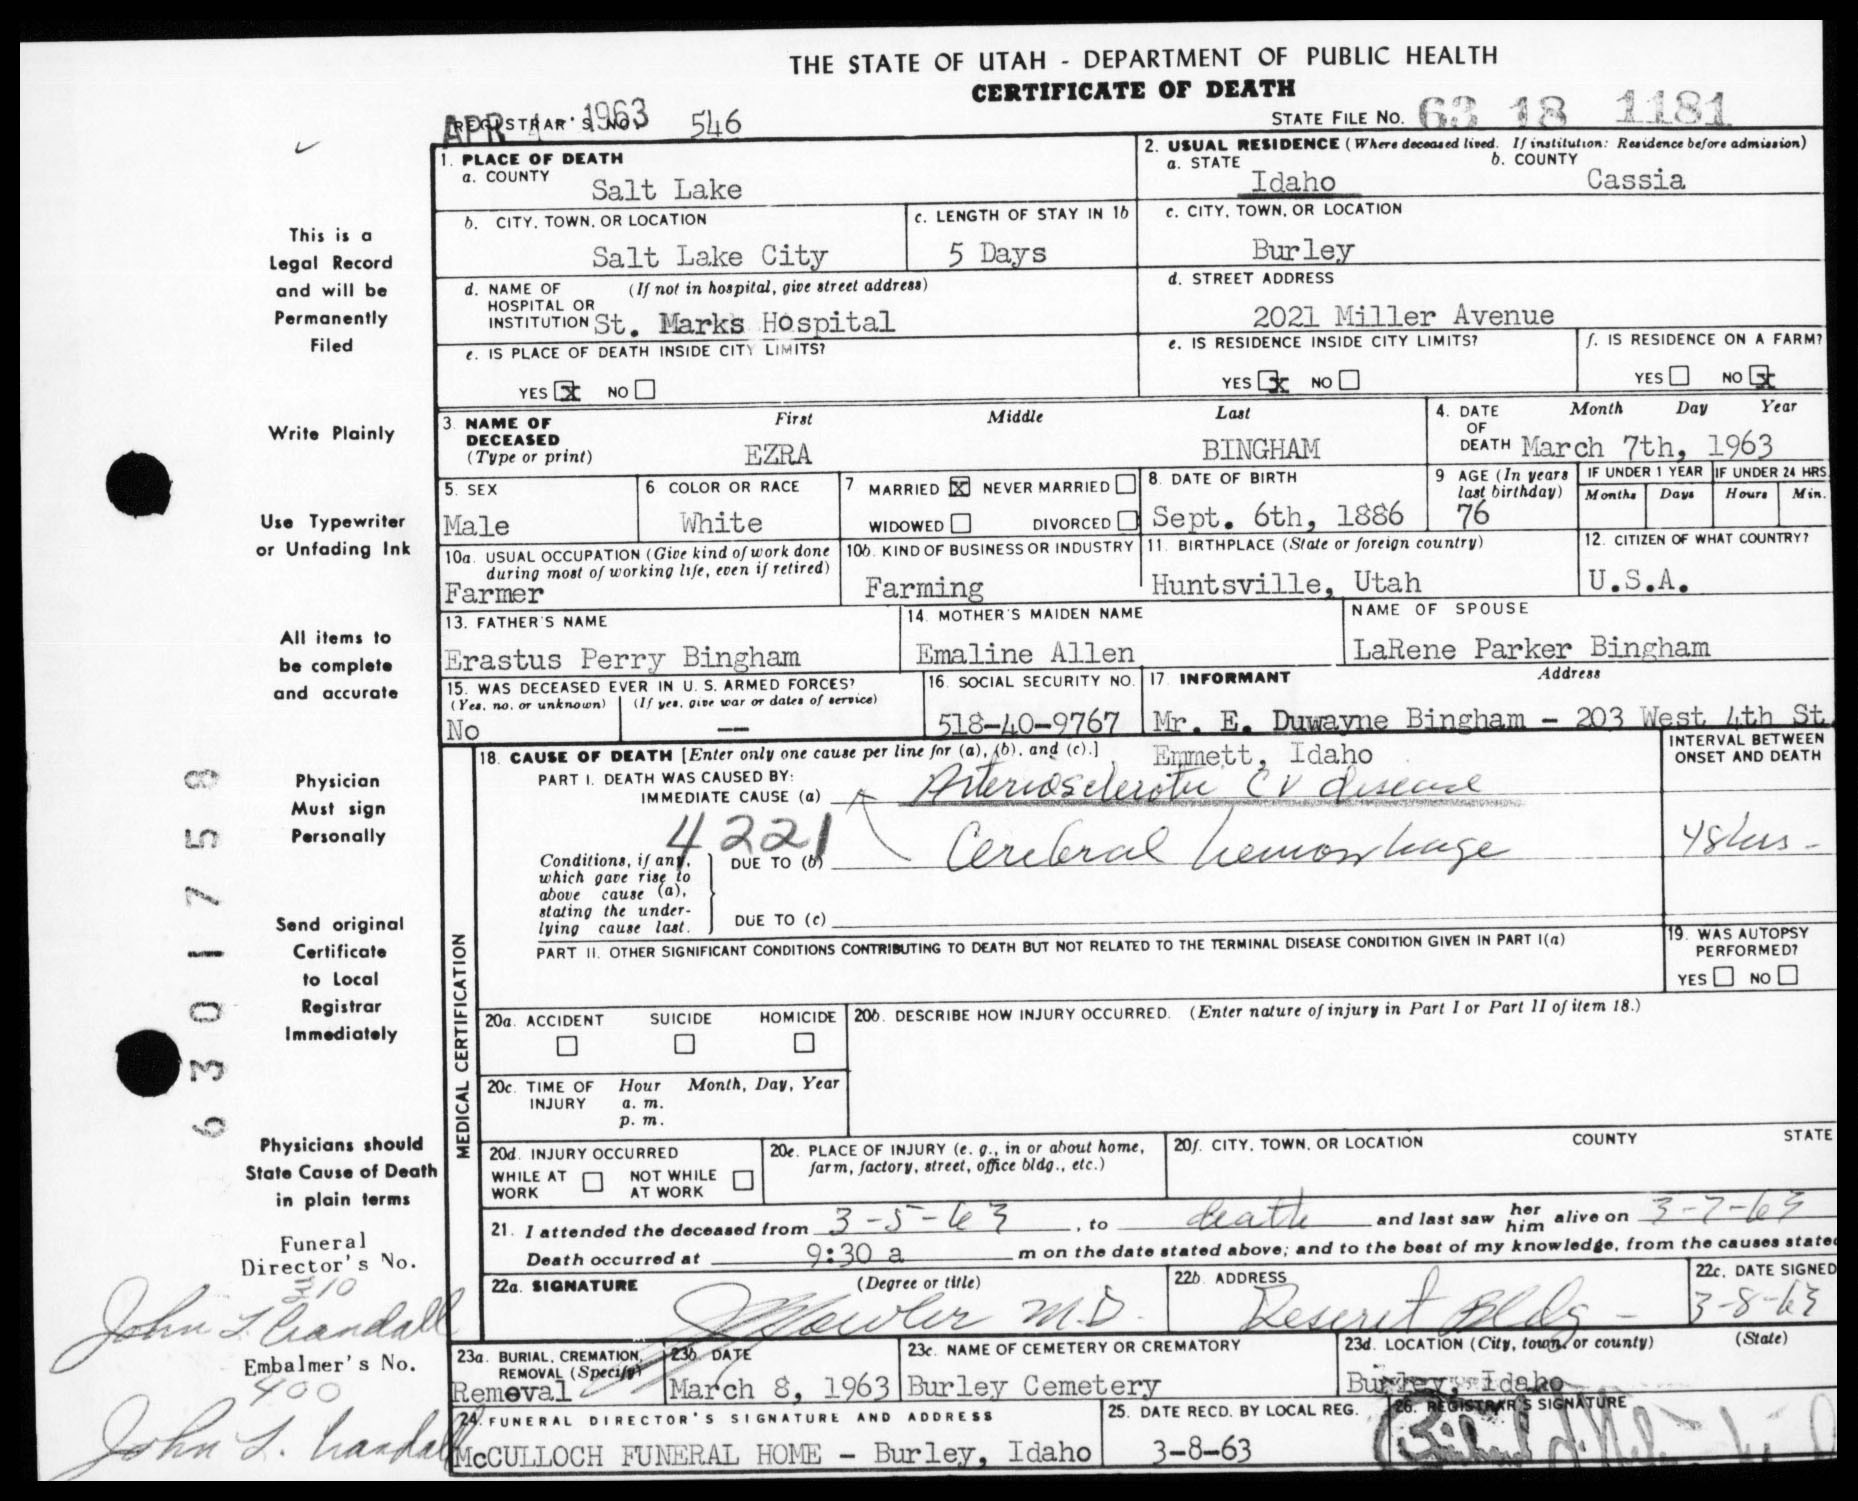 THE STATE OF UTAH - DEPARTMENT OF PUBLIC HEALTH
CERTIFICATE OF DEATH
APR 1963
REGISTRAR'S NO. 546
STATE FILE NO. 63 18 1181
1. PLACE OF DEATH
a. COUNTY
Salt Lake
2. USUAL RESIDENCE (Where deceased lived. If institution: Residence before admission)
a. STATE Idaho b. COUNTY Cassia
b. CITY, TOWN, OR LOCATION
Salt Lake City
c. LENGTH OF STAY IN 1b
5 Days
c. CITY, TOWN, OR LOCATION
Burley
d. NAME OF (If not in hospital, give street address)
HOSPITAL OR
INSTITUTION St. Marks Hospital
d. STREET ADDRESS
2021 Miller Avenue
e. IS PLACE OF DEATH INSIDE CITY LIMITS?
YES x NO
e. IS RESIDENCE INSIDE CITY LIMITS?
YES x NO
f. IS RESIDENCE ON A FARM?
YES NO x
3. NAME OF DECEASED (Type or print)
First Middle Last
EZRA BINGHAM
4. DATE OF DEATH
Month Day Year
March 7th, 1963
5. SEX
Male
6 COLOR OR RACE
White
7 MARRIED X NEVER MARRIED
WIDOWED DIVORCED
8. DATE OF BIRTH
Sept. 6th, 1886
9 AGE (In years last birthday)
76
IF UNDER 1 YEAR
Months Days
IF UNDER 24 HRS.
Hours Min.
10a. USUAL OCCUPATION (Give kind of work done
during most of working life, even if retired)
Farmer
10b. KIND OF BUSINESS OR INDUSTRY
Farming
11. BIRTHPLACE (State or foreign country)
Huntsville, Utah
12. CITIZEN OF WHAT COUNTRY?
U.S.A.
13. FATHER'S NAME
Erastus Perry Bingham
14. MOTHER'S MAIDEN NAME
Emaline Allen
NAME OF SPOUSE
LaRene Parker Bingham
15. WAS DECEASED EVER IN U. S. ARMED FORCES?
(Yes, no, or unknown) (If yes, give war or dates of service)
No --
16. SOCIAL SECURITY NO.
518-40-9767
17. INFORMANT Address
Mr. E. Duwayne Bingham - 203 West 4th St.
Emmett, Idaho
MEDICAL CERTIFICATION
18. CAUSE OF DEATH [Enter only one cause per line for (a), (b), and (c).]
INTERVAL BETWEEN
ONSET AND DEATH
PART I. DEATH WAS CAUSED BY:
IMMEDIATE CAUSE (a) Arteriosclerotic CV disease
4221
Conditions, if any,
which gave rise to
above cause (a),
stating the under-
lying cause last.
DUE TO (b) Cerebral hemorrhage 48 hrs -
DUE TO (c)
PART II. OTHER SIGNIFICANT CONDITIONS CONTRIBUTING TO DEATH BUT NOT RELATED TO THE TERMINAL DISEASE CONDITION GIVEN IN PART I(a)
19. WAS AUTOPSY
PERFORMED?
YES NO
20a. ACCIDENT SUICIDE HOMICIDE
20b. DESCRIBE HOW INJURY OCCURRED. (Enter nature of injury in Part I or Part II of item 18.)
20c. TIME OF INJURY Hour Month, Day, Year
a. m.
p. m.
20d. INJURY OCCURRED
WHILE AT WORK NOT WHILE AT WORK
20e. PLACE OF INJURY (e. g., in or about home,
farm, factory, street, office bldg., etc.)
20f. CITY, TOWN, OR LOCATION COUNTY STATE
21. I attended the deceased from 3-5-63, to death and last saw her him alive on 3-7-63
Death occurred at 9:30 a m on the date stated above; and to the best of my knowledge, from the causes state
22a. SIGNATURE (Degree or title)
Fowler M.D.
22b. ADDRESS
Deseret Bldg -
22c. DATE SIGNED
3-8-63
23a. BURIAL, CREMATION,
REMOVAL (Specify)
Removal
23b. DATE
March 8, 1963
23c. NAME OF CEMETERY OR CREMATORY
Burley Cemetery
23d. LOCATION (City, town, or county) (State)
Burley, Idaho
24. FUNERAL DIRECTOR'S SIGNATURE AND ADDRESS
McCULLOCH FUNERAL HOME - Burley, Idaho
25. DATE RECD. BY LOCAL REG.
3-8-63
26. REGISTRAR'S SIGNATURE
This is a
Legal Record
and will be
Permanently
Filed
Write Plainly
Use Typewriter
or Unfading Ink
All items to
be complete
and accurate
Physician
Must sign
Personally
Send original
Certificate
to Local
Registrar
Immediately
Physicians should
State Cause of Death
in plain terms
Funeral
Director's No.
310
John L. Crandall
Embalmer's No.
400
John L. Crandall
6301758